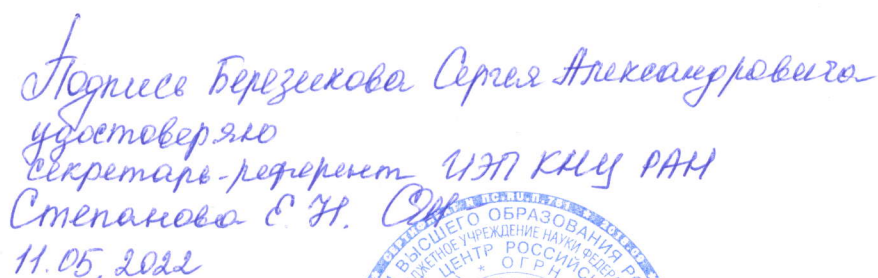 Подпись Березикова Сергея Александровича
удостоверяю
секретарь-референт ИЭП КНЦ РАН
Степанова Е.Н.
11.05.2022
ВЫСШЕГО ОБРАЗОВАНИЯ
УЧРЕЖДЕНИЕ НАУКИ
ЦЕНТР
ОГРН